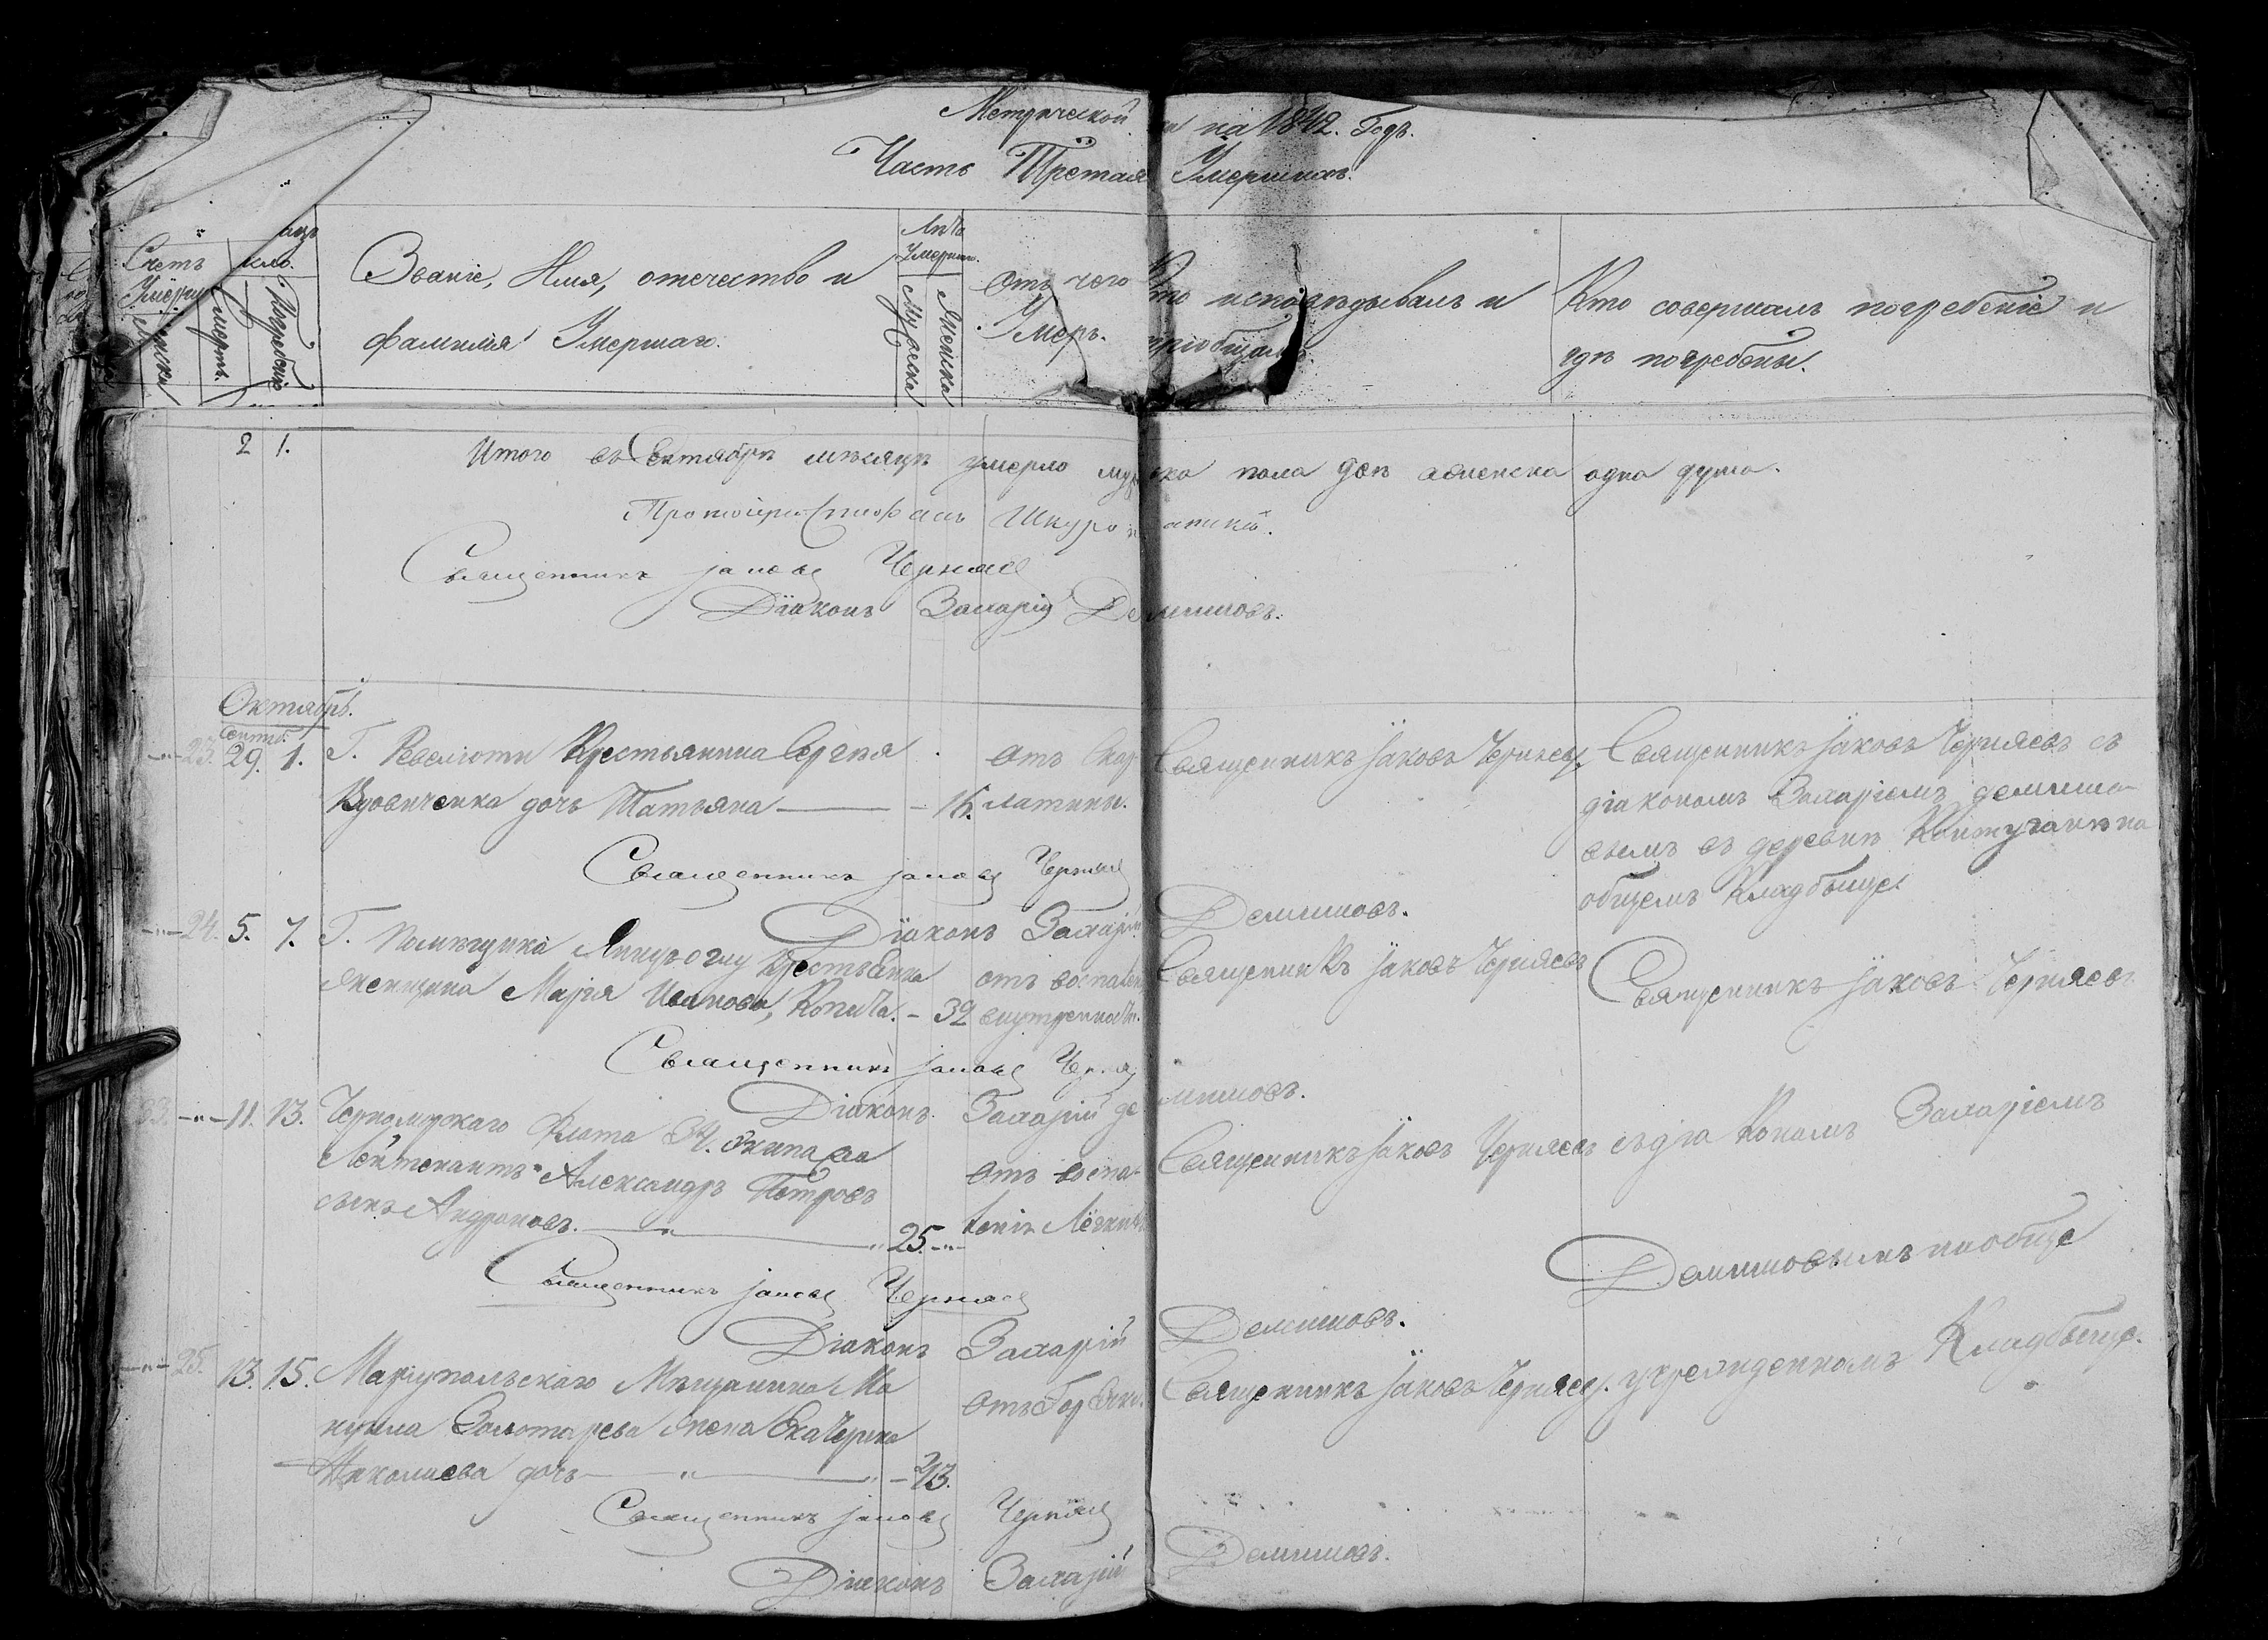 Метрической на 1842. Годъ.
Часть Третая Умершихъ.
Счетъ Умерш
Женска
Смерть.
Погребенія
Званіе, Имя, отечество и
фамилія Умершаго.
Лѣта Умерша.
Мужеска
Женска
Отъ чего
Умеръ.
Кто исповѣдывалъ и
пріобщалъ.
Кто совершалъ погребеніе и
гдѣ погребены.
2 1. Итого въ Сентябрѣ мѣсяцѣ умерло мужеска пола двѣ женска одна душа.
Протоіерей Стефанъ
Священникъ Іаковъ Черняев
Діаконъ Захарій Демишовъ.
Октябрь.
Сентяб.
23. 29. 1. Г. Ревелюти Крестьянина Сергѣя
Вдовиченка дочь Татьяна — 16.
Отъ Скар
латины.
Священникъ Іаковъ Черняевъ.
Священникъ Іаковъ Черняевъ съ
діакономъ Захаріемъ демишо
вымъ въ деревнѣ на
общемъ Кладбыще.
Священникъ Іаковъ Черняев
Діаконъ Захарій Демишовъ.
24. 5. 7. Г. Помѣщика Крестьянка
женщина Марія Иванова, — 32
отъ воспален
внутренност.
Священникъ Іаковъ Черняевъ
Священникъ Іаковъ Черняевъ
Священникъ Іаковъ Черняев
Діаконъ Захарій демишовъ.
33. 11. 13. Черноморскаго Флота Экипажа
Лейтенантъ Александръ Петровъ
сынъ Андроновъ. — 25.
Отъ воспа
ленія Лёгкихъ
Священникъ Іаковъ Черняевъ съ діакономъ Захаріемъ
Демишовымъ на обще
Священникъ Іаковъ Черняев
Діаконъ Захарій Демишовъ.
25. 13. 15. Маріупольскаго Мѣщанина Ма
нуила Золотарева жена Екатерина
Николаева дочь —
Отъ Горячки.
Священникъ Іаковъ Черняевъ. учрежденномъ Кладбыще.
Священникъ Іаковъ Черняев
Діаконъ Захарій Демишовъ.